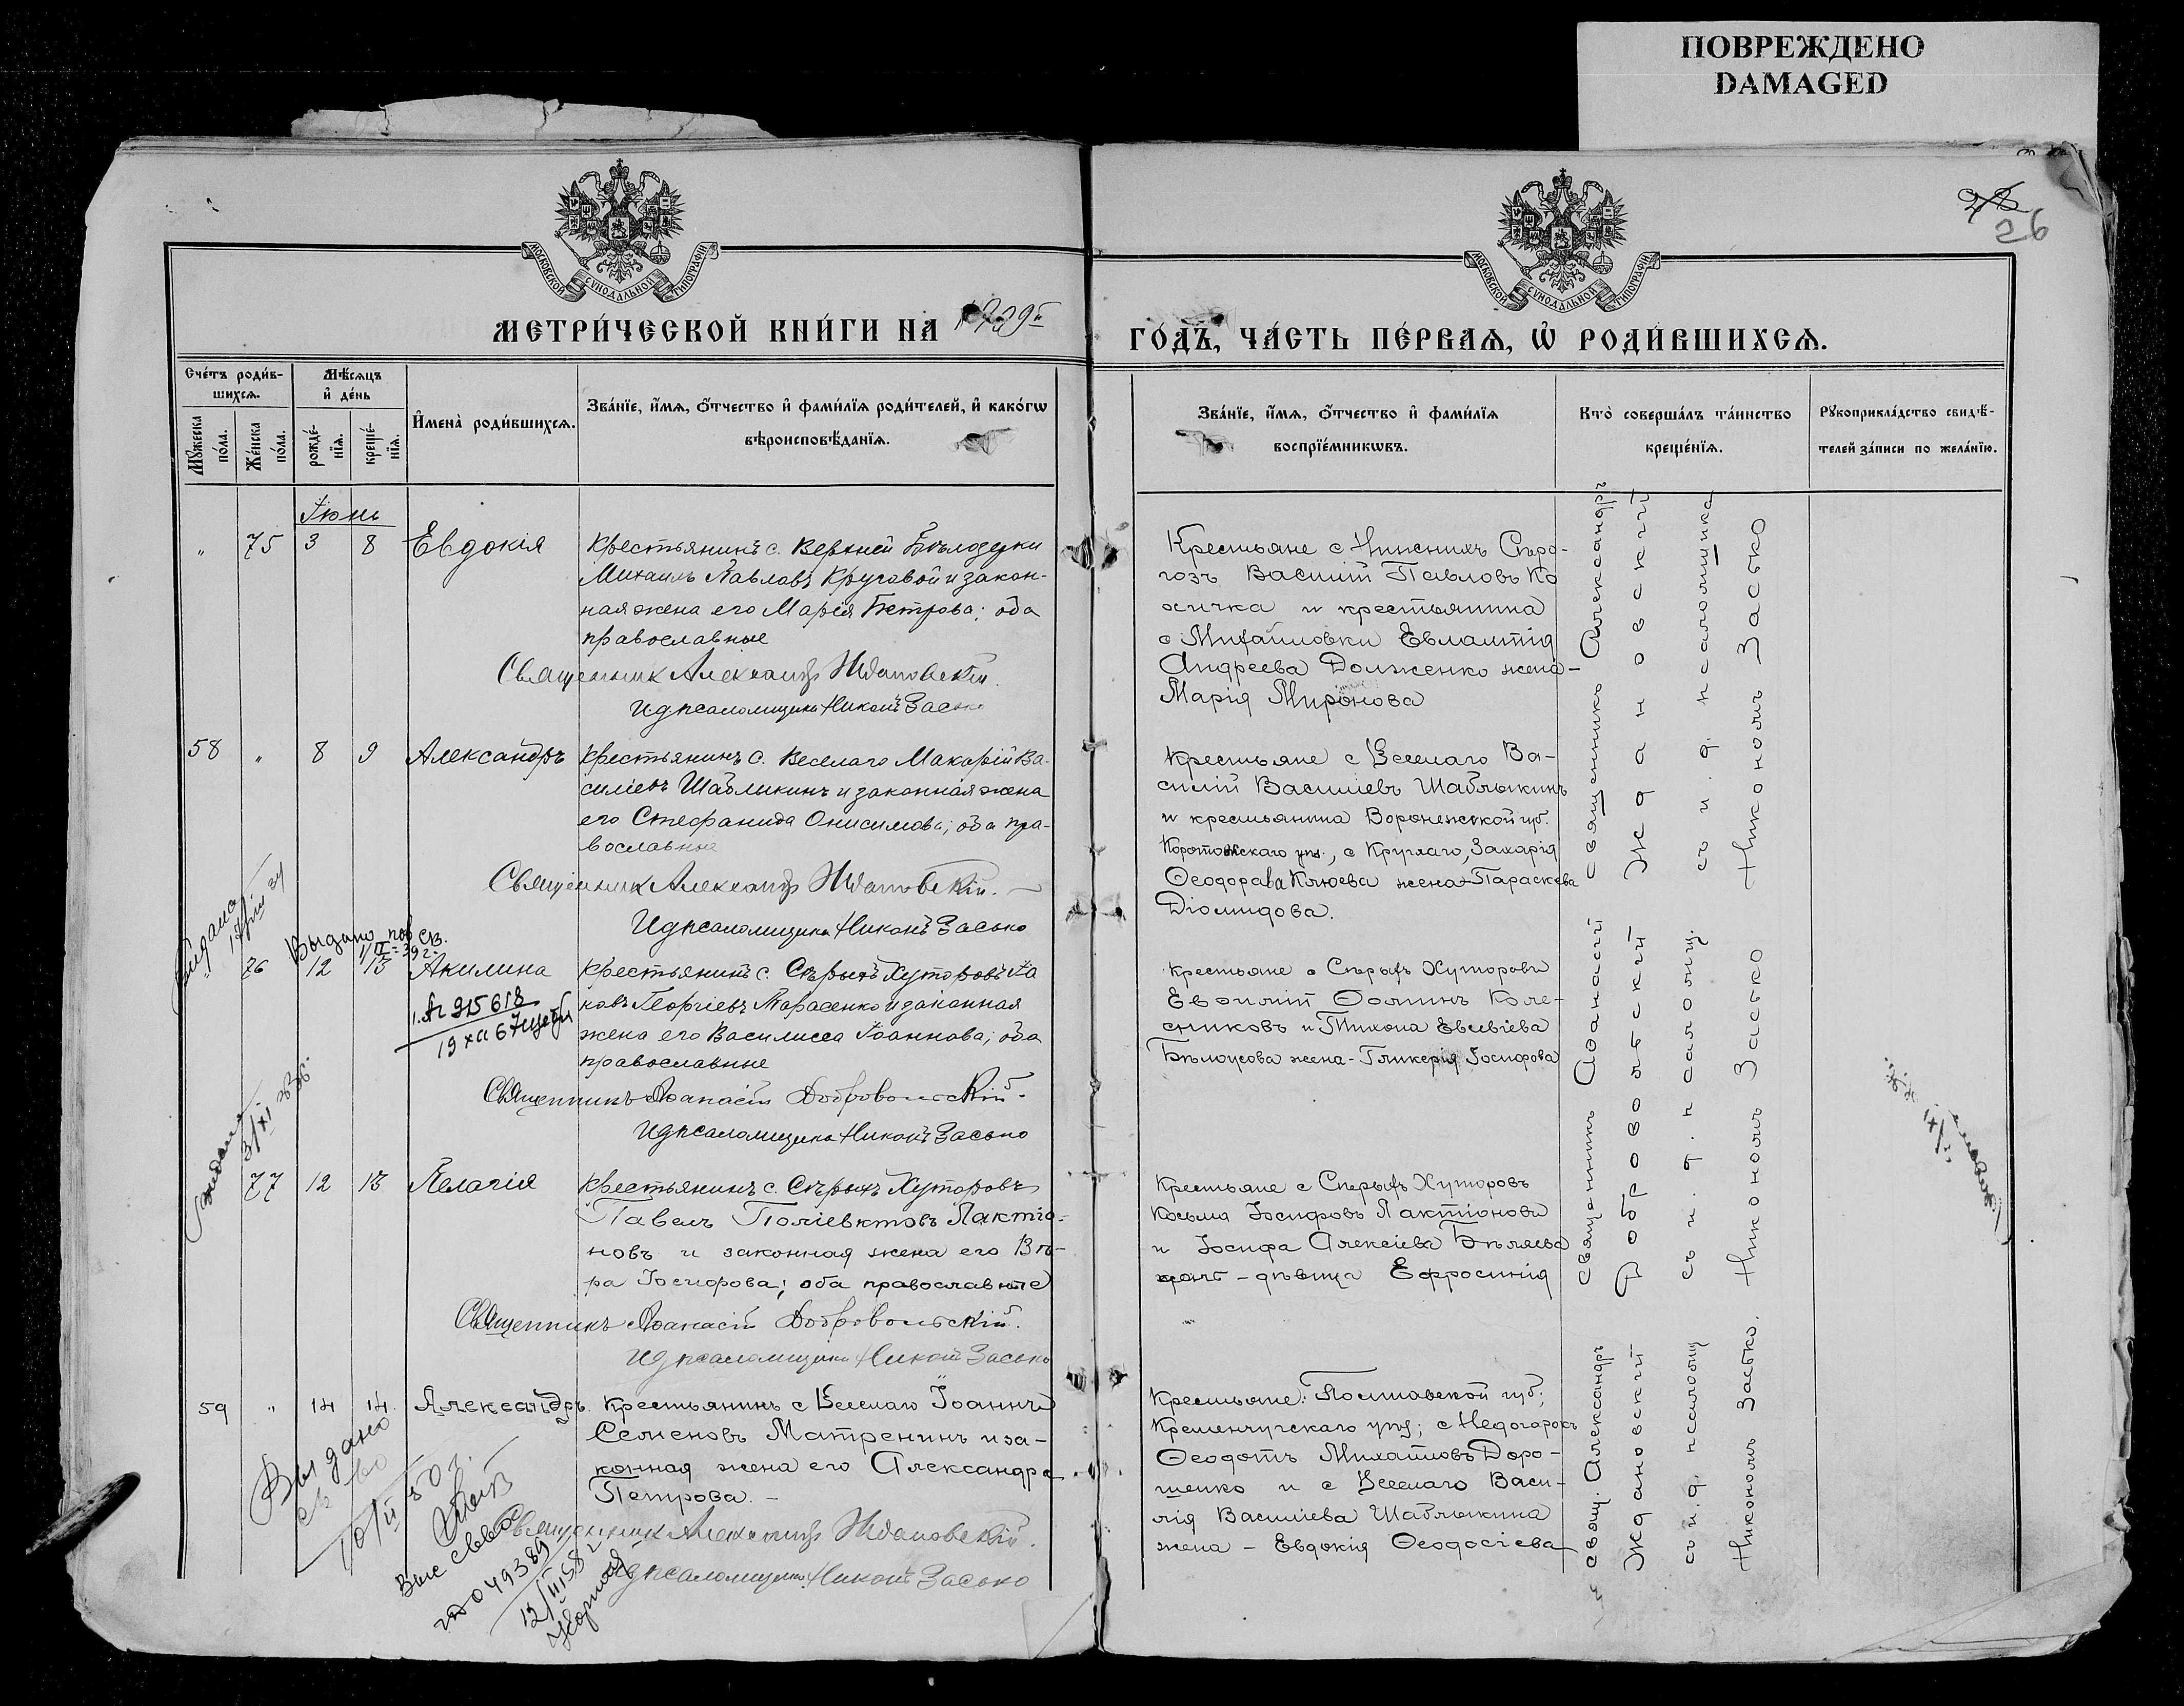 ПОВРЕЖДЕНО
DAMAGED
28
26
МОСКОВСКОЙ СУНОДАЛЬНОЙ ТИПОГРАФІИ
МОСКОВСКОЙ СУНОДАЛЬНОЙ ТИПОГРАФІИ
МЕТРИ́ЧЕСКОЙ КНИ́ГИ НА
ГО́ДЪ, ЧА́СТЬ ПЕ́РВАѦ, Ѡ҆ РОДИ́ВШИХСѦ.
Сче́тъ роди́в-
шихсѧ.
Мѣ́сѧцъ
и҆ де́нь
Мꙋ́жеска по́ла.
Же́нска по́ла.
рожде́-
нїѧ.
креще́-
нїѧ.
И҆мена̀ роди́вшихсѧ.
Зва́нїе, и҆́мѧ, ѻ҆́тчество и҆ фами́лїѧ роди́телей, и҆ како́гѡ
вѣроисповѣ́данїѧ.
Зва́нїе, и҆́мѧ, ѻ҆́тчество и҆ фами́лїѧ
воспрїе́мникѡвъ.
Кто̀ соверша́лъ та́инство
креще́нїѧ.
Рꙋкоприкла́дство свидѣ́-
телей за́писи по жела́нїю.
Іюнь
" 75 3 8 Евдокія
Крестьянинъ с. Верхней Бѣлозерки
Михаилъ Павловъ Круговой и закон-
ная жена его Марія Петрова; оба
православные
Священникъ Александръ Ждановскій.
И д псаломщика Никонъ Засько
Крестьяне с Нижнихъ Сѣро-
гозъ Василій Павловъ Ко
сичка и крестьянина
с Михайловки Евлампія
Андреева Долженко жена-
Марія Миронова
Священникъ Александръ
Ждановскій
съ и. д. псаломщика
Никономъ Засько
58 " 8 9 Александръ
Крестьянинъ с. Веселаго Макарій Ва-
силіевъ Шаблыкинъ и законная жена
его Стефанида Онисимова; оба пра-
вославные
Священникъ Александръ Ждановскій.
И д псаломщика Никонъ Засько
Крестьяне с Веселаго Ва-
силій Василіевъ Шаблыкинъ
и крестьянина Воронежской губ.
Коротоякскаго уѣз., с Круглаго, Захарія
Ѳеодорова Клюева жена Параскева
Діомидова.
Выдано пов. св.
" 76 12 13 Акилина
Крестьянинъ с. Сѣрыхъ Хуторовъ Іа
ковъ Георгіевъ Тарасенко и законная
жена его Василисса Іоаннова; оба
православные
Священникъ Аѳанасій Добровольскій.
И д псаломщика Никонъ Засько
Крестьяне с Сѣрыхъ Хуторовъ
Ѳоминъ Коле-
сниковъ и Тихона Евсевіева
Бѣлоусова жена - Гликерія Іосифова
Священникъ Аѳанасій
Добровольскій
съ и. д. псаломщ.
Никономъ Засько
77 12 13 Пелагія
Крестьянинъ с. Сѣрыхъ Хуторовъ
Павелъ Поліевктовъ Лактіо-
новъ и законная жена его Вѣ-
ра Іосифова; оба православные
Священникъ Аѳанасій Добровольскій.
И д псаломщика Никонъ Засько
Крестьяне с Сѣрыхъ Хуторовъ
Косьма Іосифовъ Лактіоновъ
и Іосифа Алексіева Бѣляева
дочь - дѣвица Ефросинія
59 " 14 14 Александръ.
Крестьянинъ с Веселаго Іоаннъ
Семеновъ Матренинъ и за-
конная жена его Александра
Петрова. -
Священникъ Александръ Ждановскій.
И д псаломщика Никонъ Засько
Крестьяне: Полтавской губ;
Кременчугскаго уѣз; с Недогарокъ
Ѳеодотъ Михайловъ Доро-
шенко и с Веселаго Васи-
лія Василіева Шаблыкина
жена - Евдокія Ѳеодосіева
Свящ. Александръ
Ждановскій
съ и. д. псаломщ
Никономъ Засько.
Выдано
св во